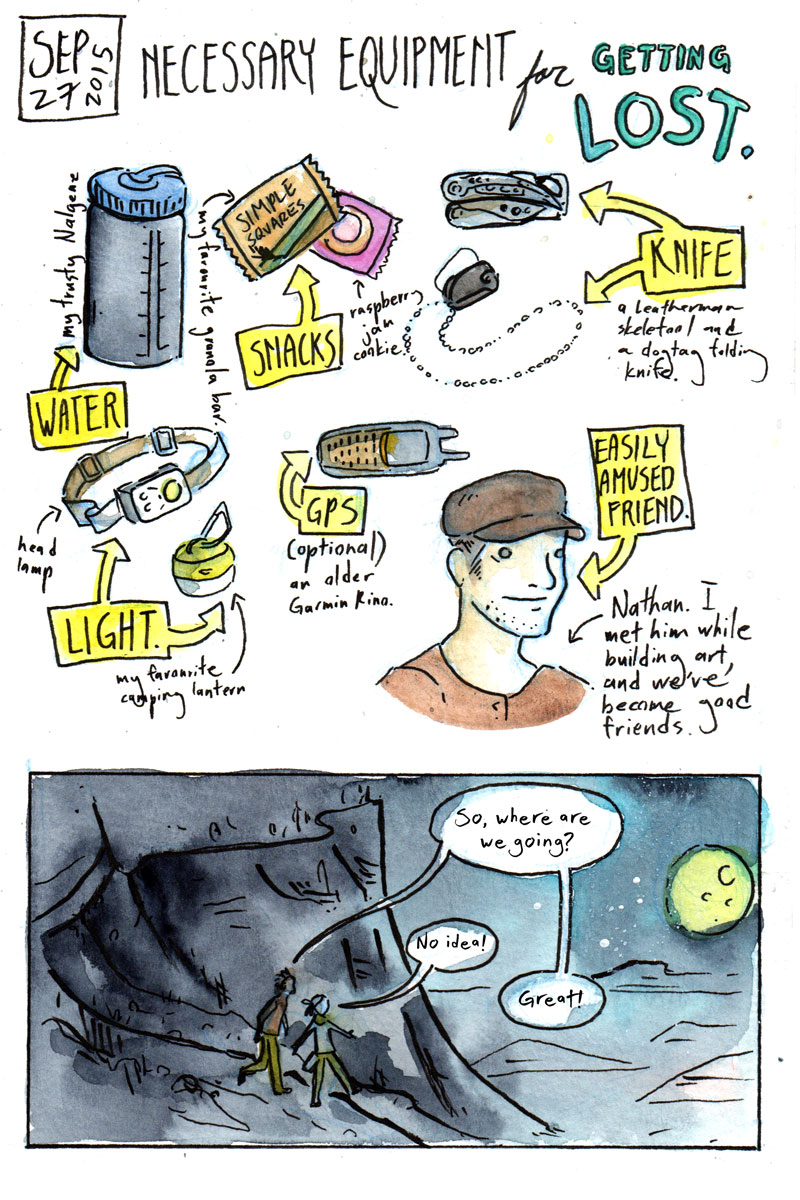 SEP
27 2015
NECESSARY EQUIPMENT for GETTING
LOST.
my trusty Nalgene
WATER
my favourite granola bar.
SIMPLE
SQUARES
SNACKS
raspberry
jam
cookie.
KNIFE
a Leatherman
skeletool and
a dogtag folding
knife.
head
lamp
LIGHT.
my favourite
camping lantern
GPS
(optional)
an older
Garmin Rino.
EASILY
AMUSED
FRIEND.
Nathan. I
met him while
building art,
and we've
become good
friends.
So, where are
we going?
No idea!
Great!